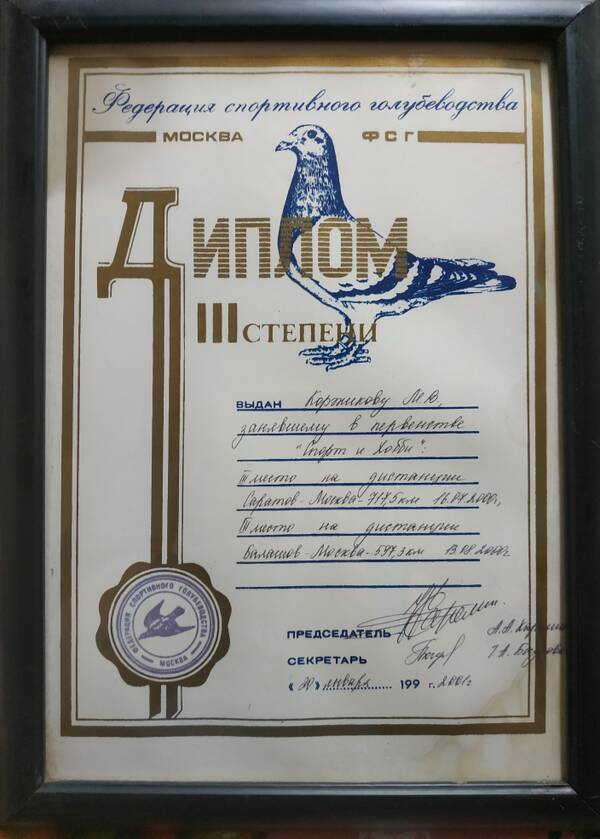 Федерация спортивного голубеводства
МОСКВА ФСГ
ДИПЛОМ
III СТЕПЕНИ
ВЫДАН Коржикову М.В.,
занявшему в первенстве
"Спорт и Хобби":
III место на дистанции
Саратов-Москва-717,5 км 16.07.2000г.,
III место на дистанции
Балашов-Москва-597,3 км 13.08.2000г.
ФЕДЕРАЦИЯ СПОРТИВНОГО ГОЛУБЕВОДСТВА
МОСКВА
ПРЕДСЕДАТЕЛЬ А.А.
СЕКРЕТАРЬ
«20» января 199 г. 2001г